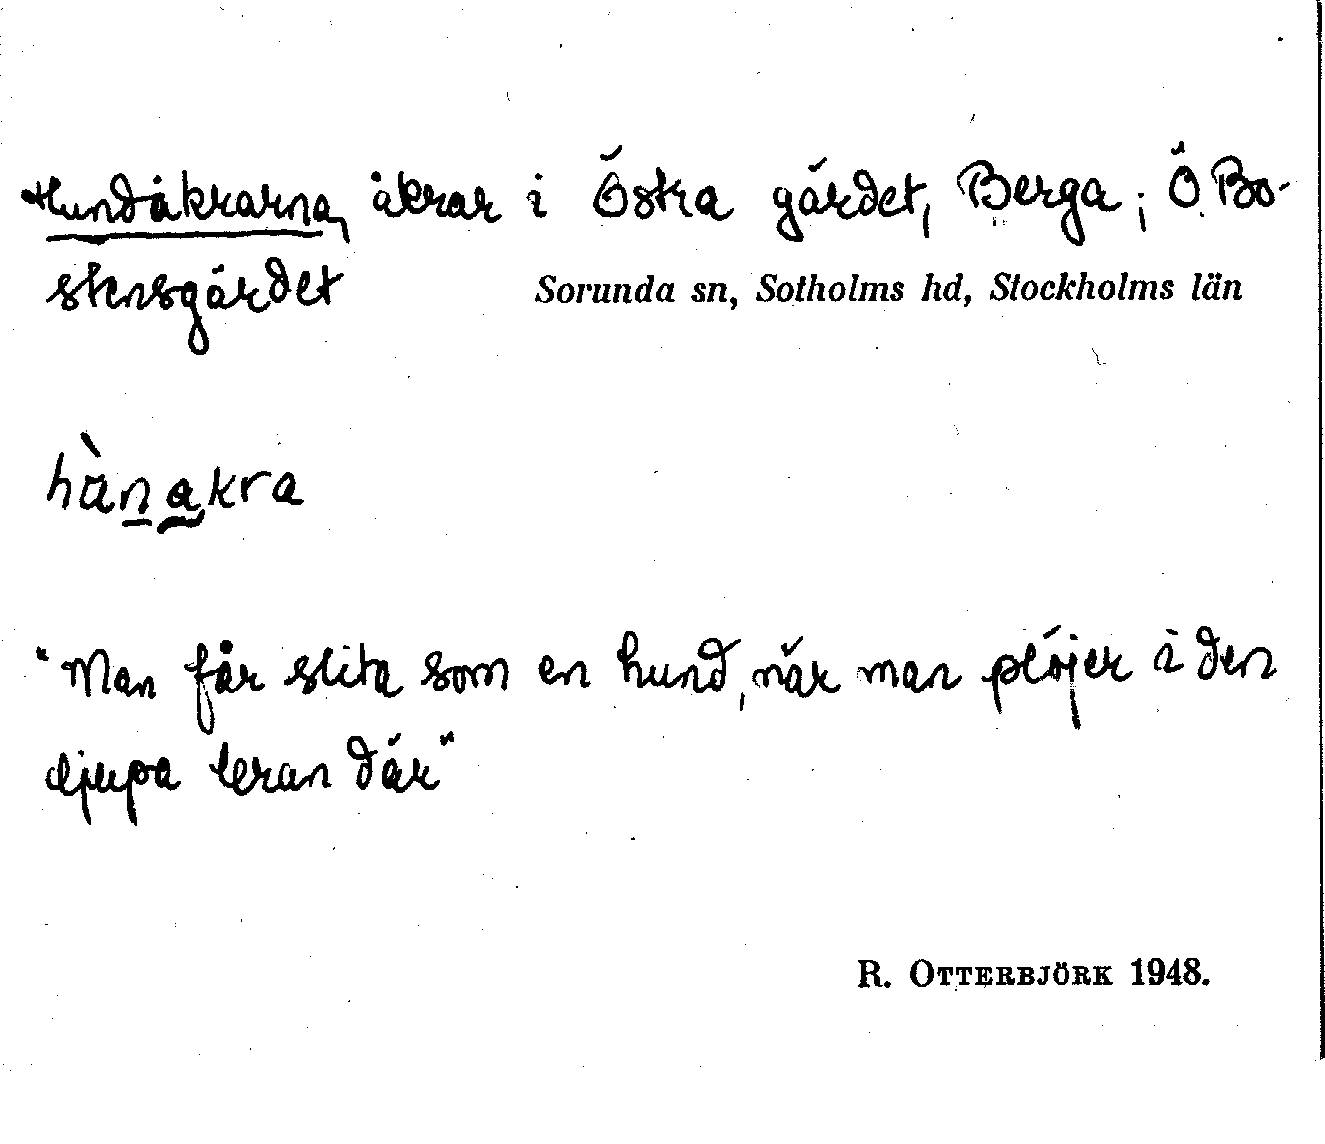 Hundåkrarna, åkrar i Östra gärdet, Berga; Ö Bo-
stensgärdet
Sorunda sn, Sotholms hd, Stockholms län
hànakra
"Man får slita som en hund, när man plöjer i den
djupa leran där"
R. OTTERBJÖRK 1948.